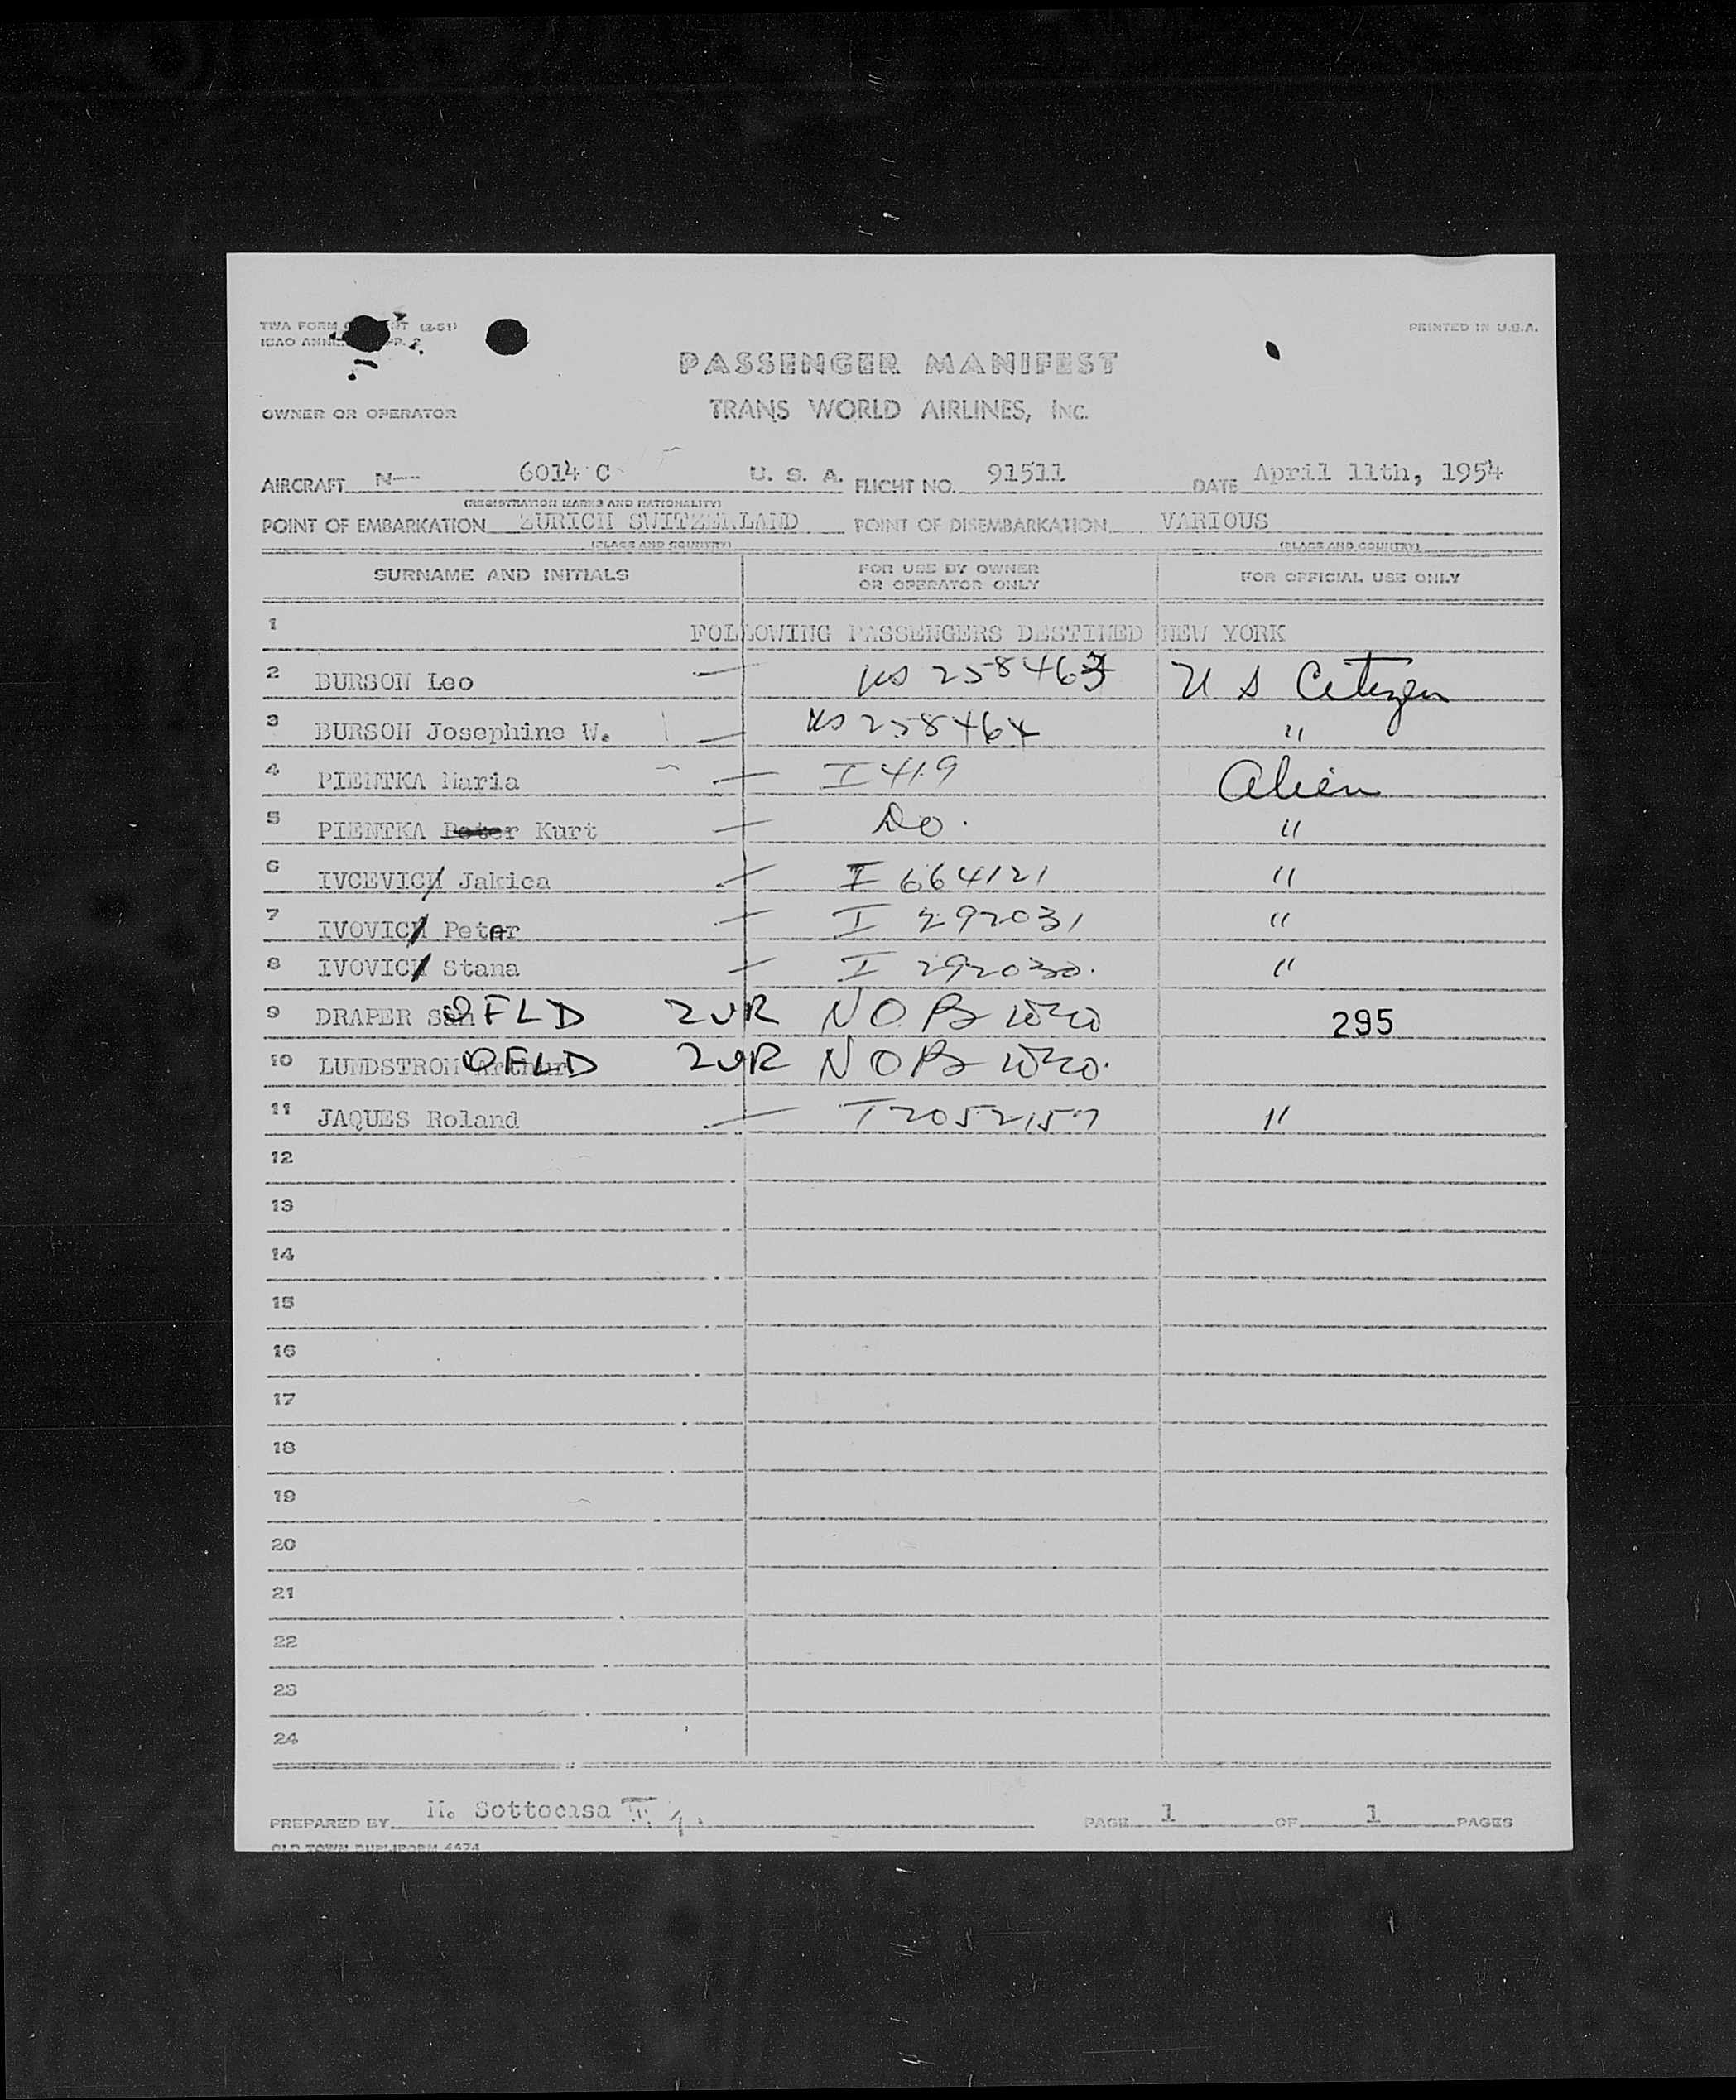 TWA FORM (2-51)
PRINTED IN U.S.A.
ICAO
PASSENGER MANIFEST
OWNER OR OPERATOR TRANS WORLD AIRLINES, INC.
AIRCRAFT N-- 6014 C U. S. A. FLIGHT NO. 91511 DATE April 11th, 1954
(REGISTRATION MARKS AND NATIONALITY)
POINT OF EMBARKATION ZURICH SWITZERLAND POINT OF DISEMBARKATION VARIOUS
(PLACE AND COUNTRY) (PLACE AND COUNTRY)
SURNAME AND INITIALS FOR USE BY OWNER OR OPERATOR ONLY FOR OFFICIAL USE ONLY
1 FOLLOWING PASSENGERS DESTINED NEW YORK
2 BURSON Leo — US 258463 U S Citizen
3 BURSON Josephine W. — US 258464 "
4 PIENTKA Maria — I 419 Alien
5 PIENTKA Peter Kurt — Do. "
6 IVCEVICH Jakica — I 664121 "
7 IVOVICH Petar — I 292031 "
8 IVOVICH Stana — I 292030. "
9 DRAPER OFLD ZUR NO 295
10 LUNDSTROM Arthur OFLD ZUR NO
11 JAQUES Roland — I 2052157 "
12
13
14
15
16
17
18
19
20
21
22
23
24
PREPARED BY M. Sottocasa PAGE 1 OF 1 PAGES
OLD TOWN DUPLIFORM 4474